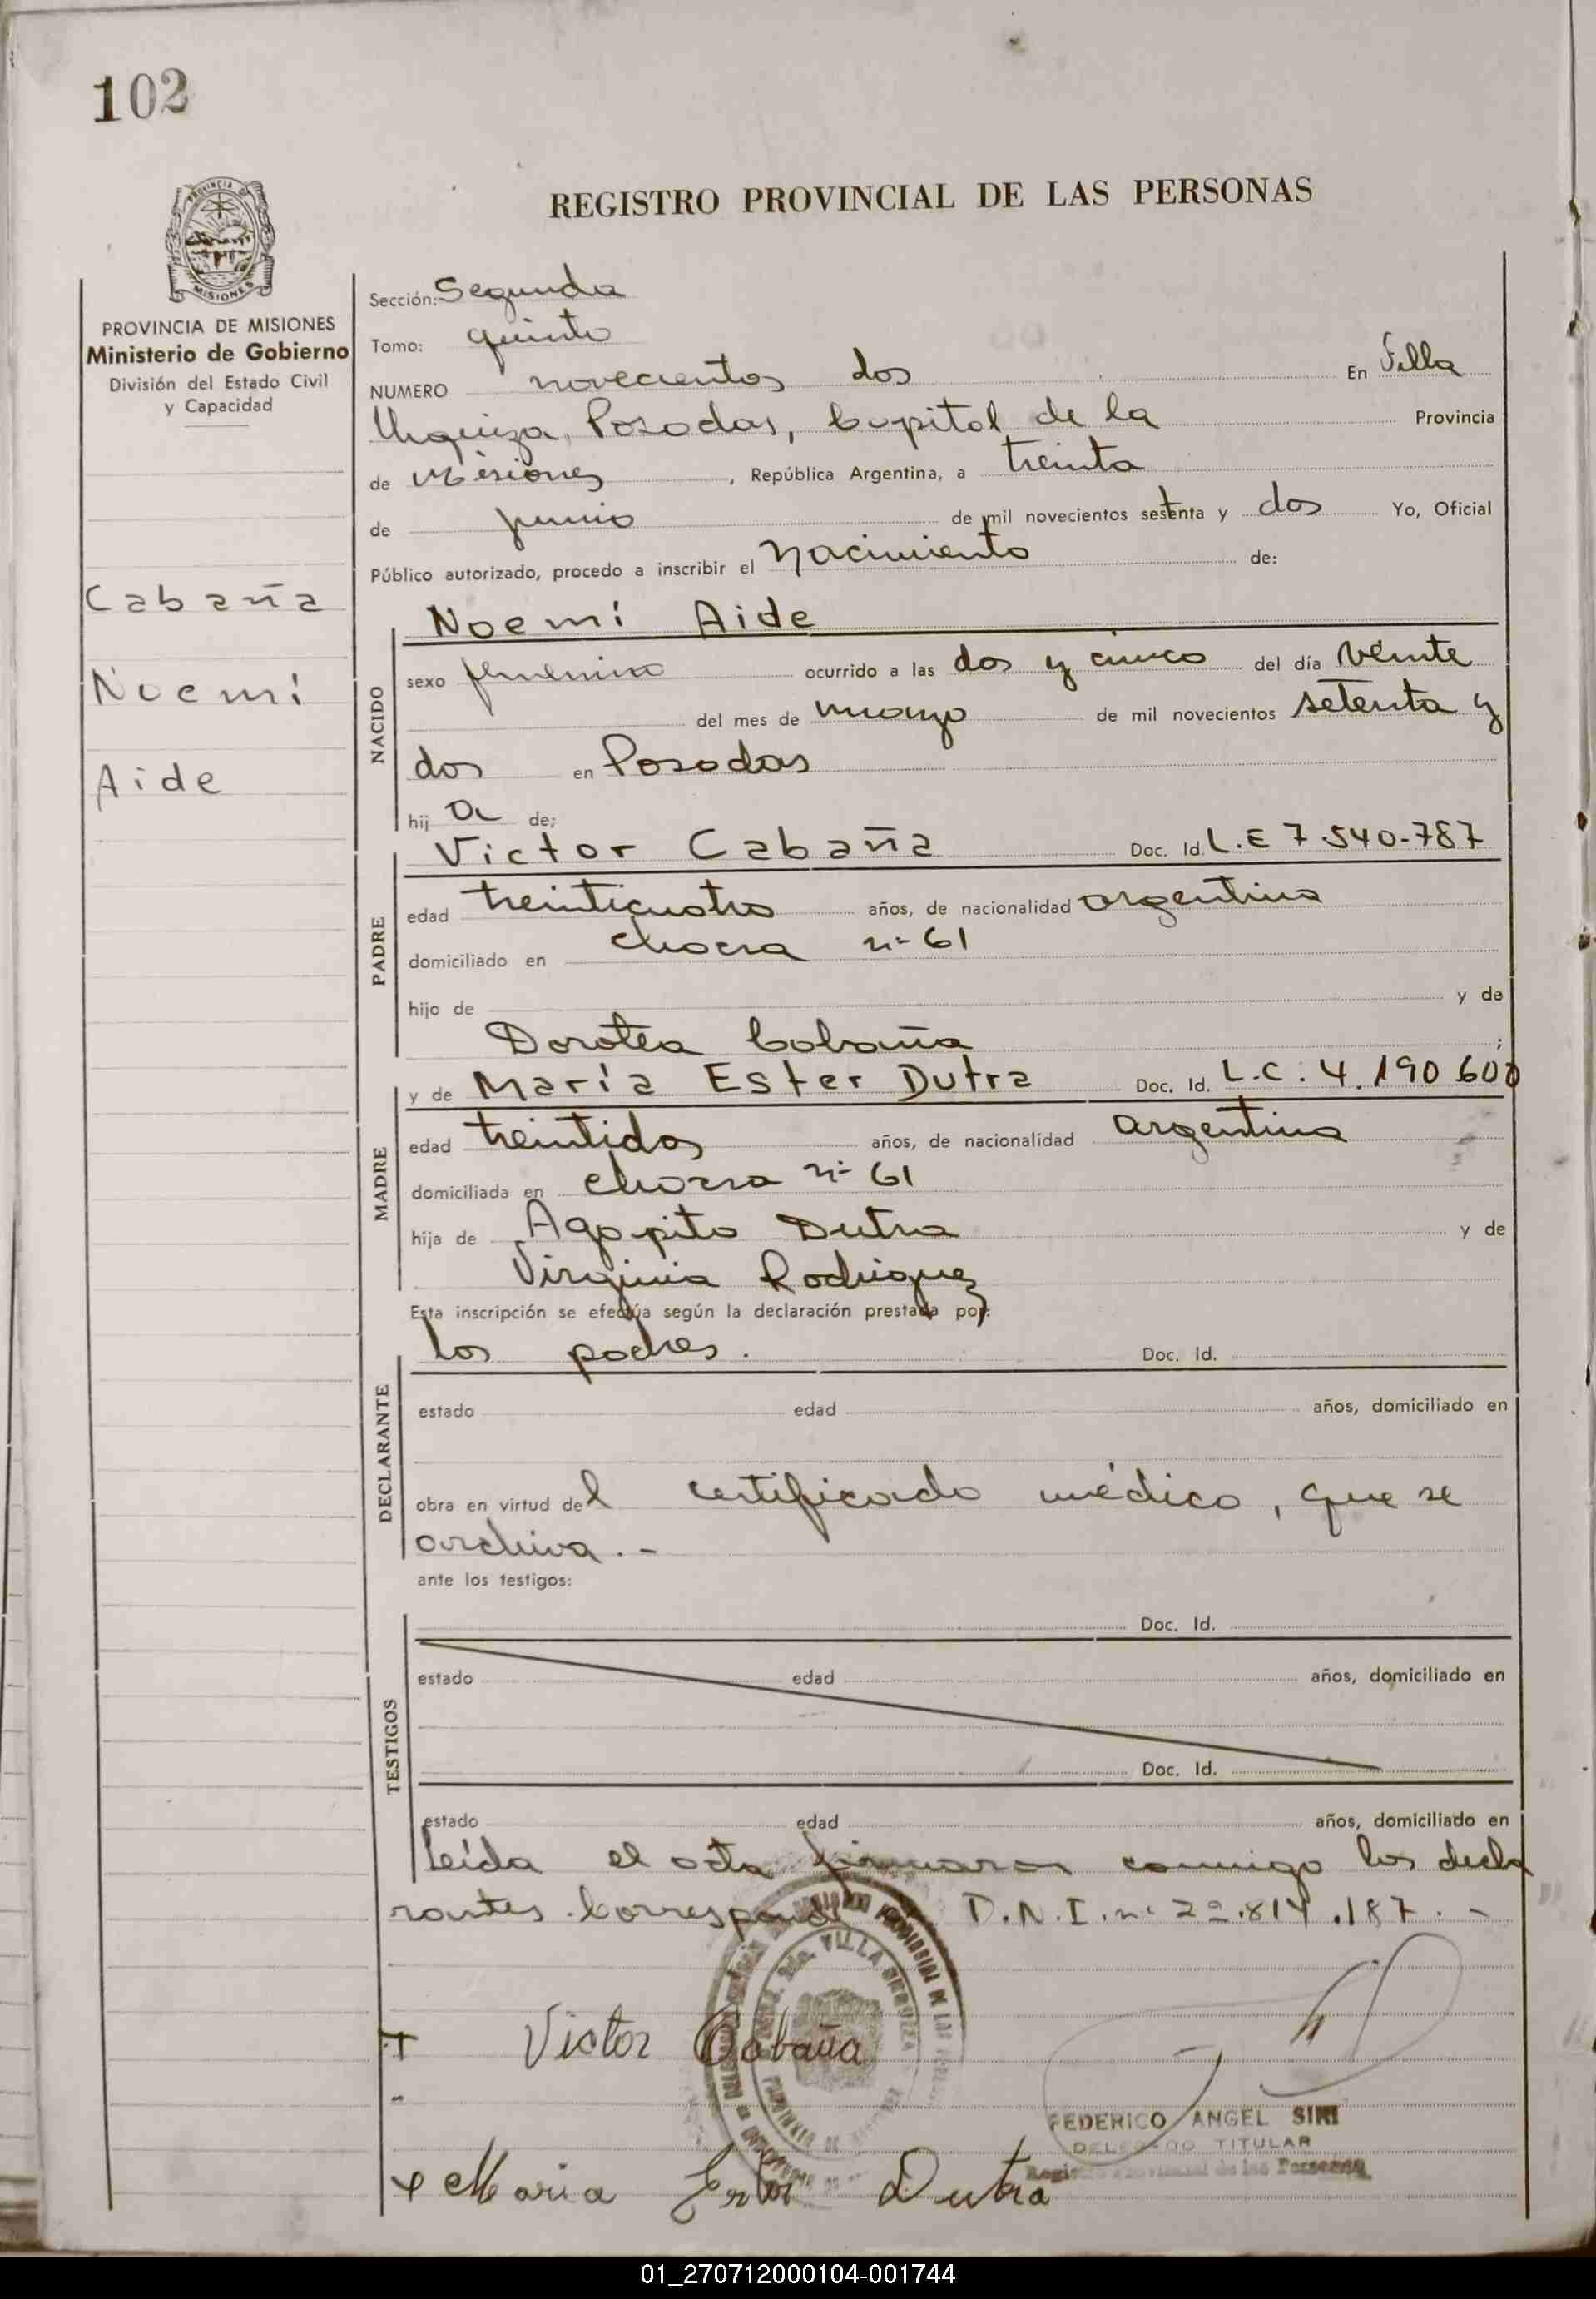 102
PROVINCIA DE
MISIONES
REGISTRO PROVINCIAL DE LAS PERSONAS
PROVINCIA DE MISIONES
Ministerio de Gobierno
División del Estado Civil
y Capacidad
Cabaña
Noemí
Aide
Sección: Segunda
Tomo: quinto
NUMERO novecientos dos En Villa
Urquiza, Posadas, Capital de la Provincia
de Misiones, República Argentina, a treinta
de junio de mil novecientos setenta y dos Yo, Oficial
Público autorizado, procedo a inscribir el Nacimiento de:
NACIDO
Noemí Aide
sexo femenino ocurrido a las dos y cinco del día veinte
del mes de marzo de mil novecientos setenta y
dos en Posadas
hij a de:
PADRE
Victor Cabaña Doc. Id. L.E 7.540-787
edad treinticuatro años, de nacionalidad argentina
domiciliado en chacra nº 61
hijo de y de
Dorotea Cabaña ;
MADRE
y de María Ester Dutra Doc. Id. L.C: 4.190 600
edad treintidos años, de nacionalidad argentina
domiciliada en chacra nº 61
hija de Agapito Dutra y de
Virginia Rodriguez
Esta inscripción se efectúa según la declaración prestada por:
DECLARANTE
los padres. Doc. Id.
estado edad años, domiciliado en
obra en virtud del certificado médico, que se
archiva.-
ante los testigos:
TESTIGOS
Doc. Id.
estado edad años, domiciliado en
Doc. Id.
estado edad años, domiciliado en
Leída el acta firmaron conmigo los decla
rantes. Corresponde D.N.I. nº 22.814.187.-
Victor Cabaña
FEDERICO ANGEL SIRI
DELEGADO TITULAR
Registro Provincial de las Personas
Maria Ester Dutra
01_270712000104-001744